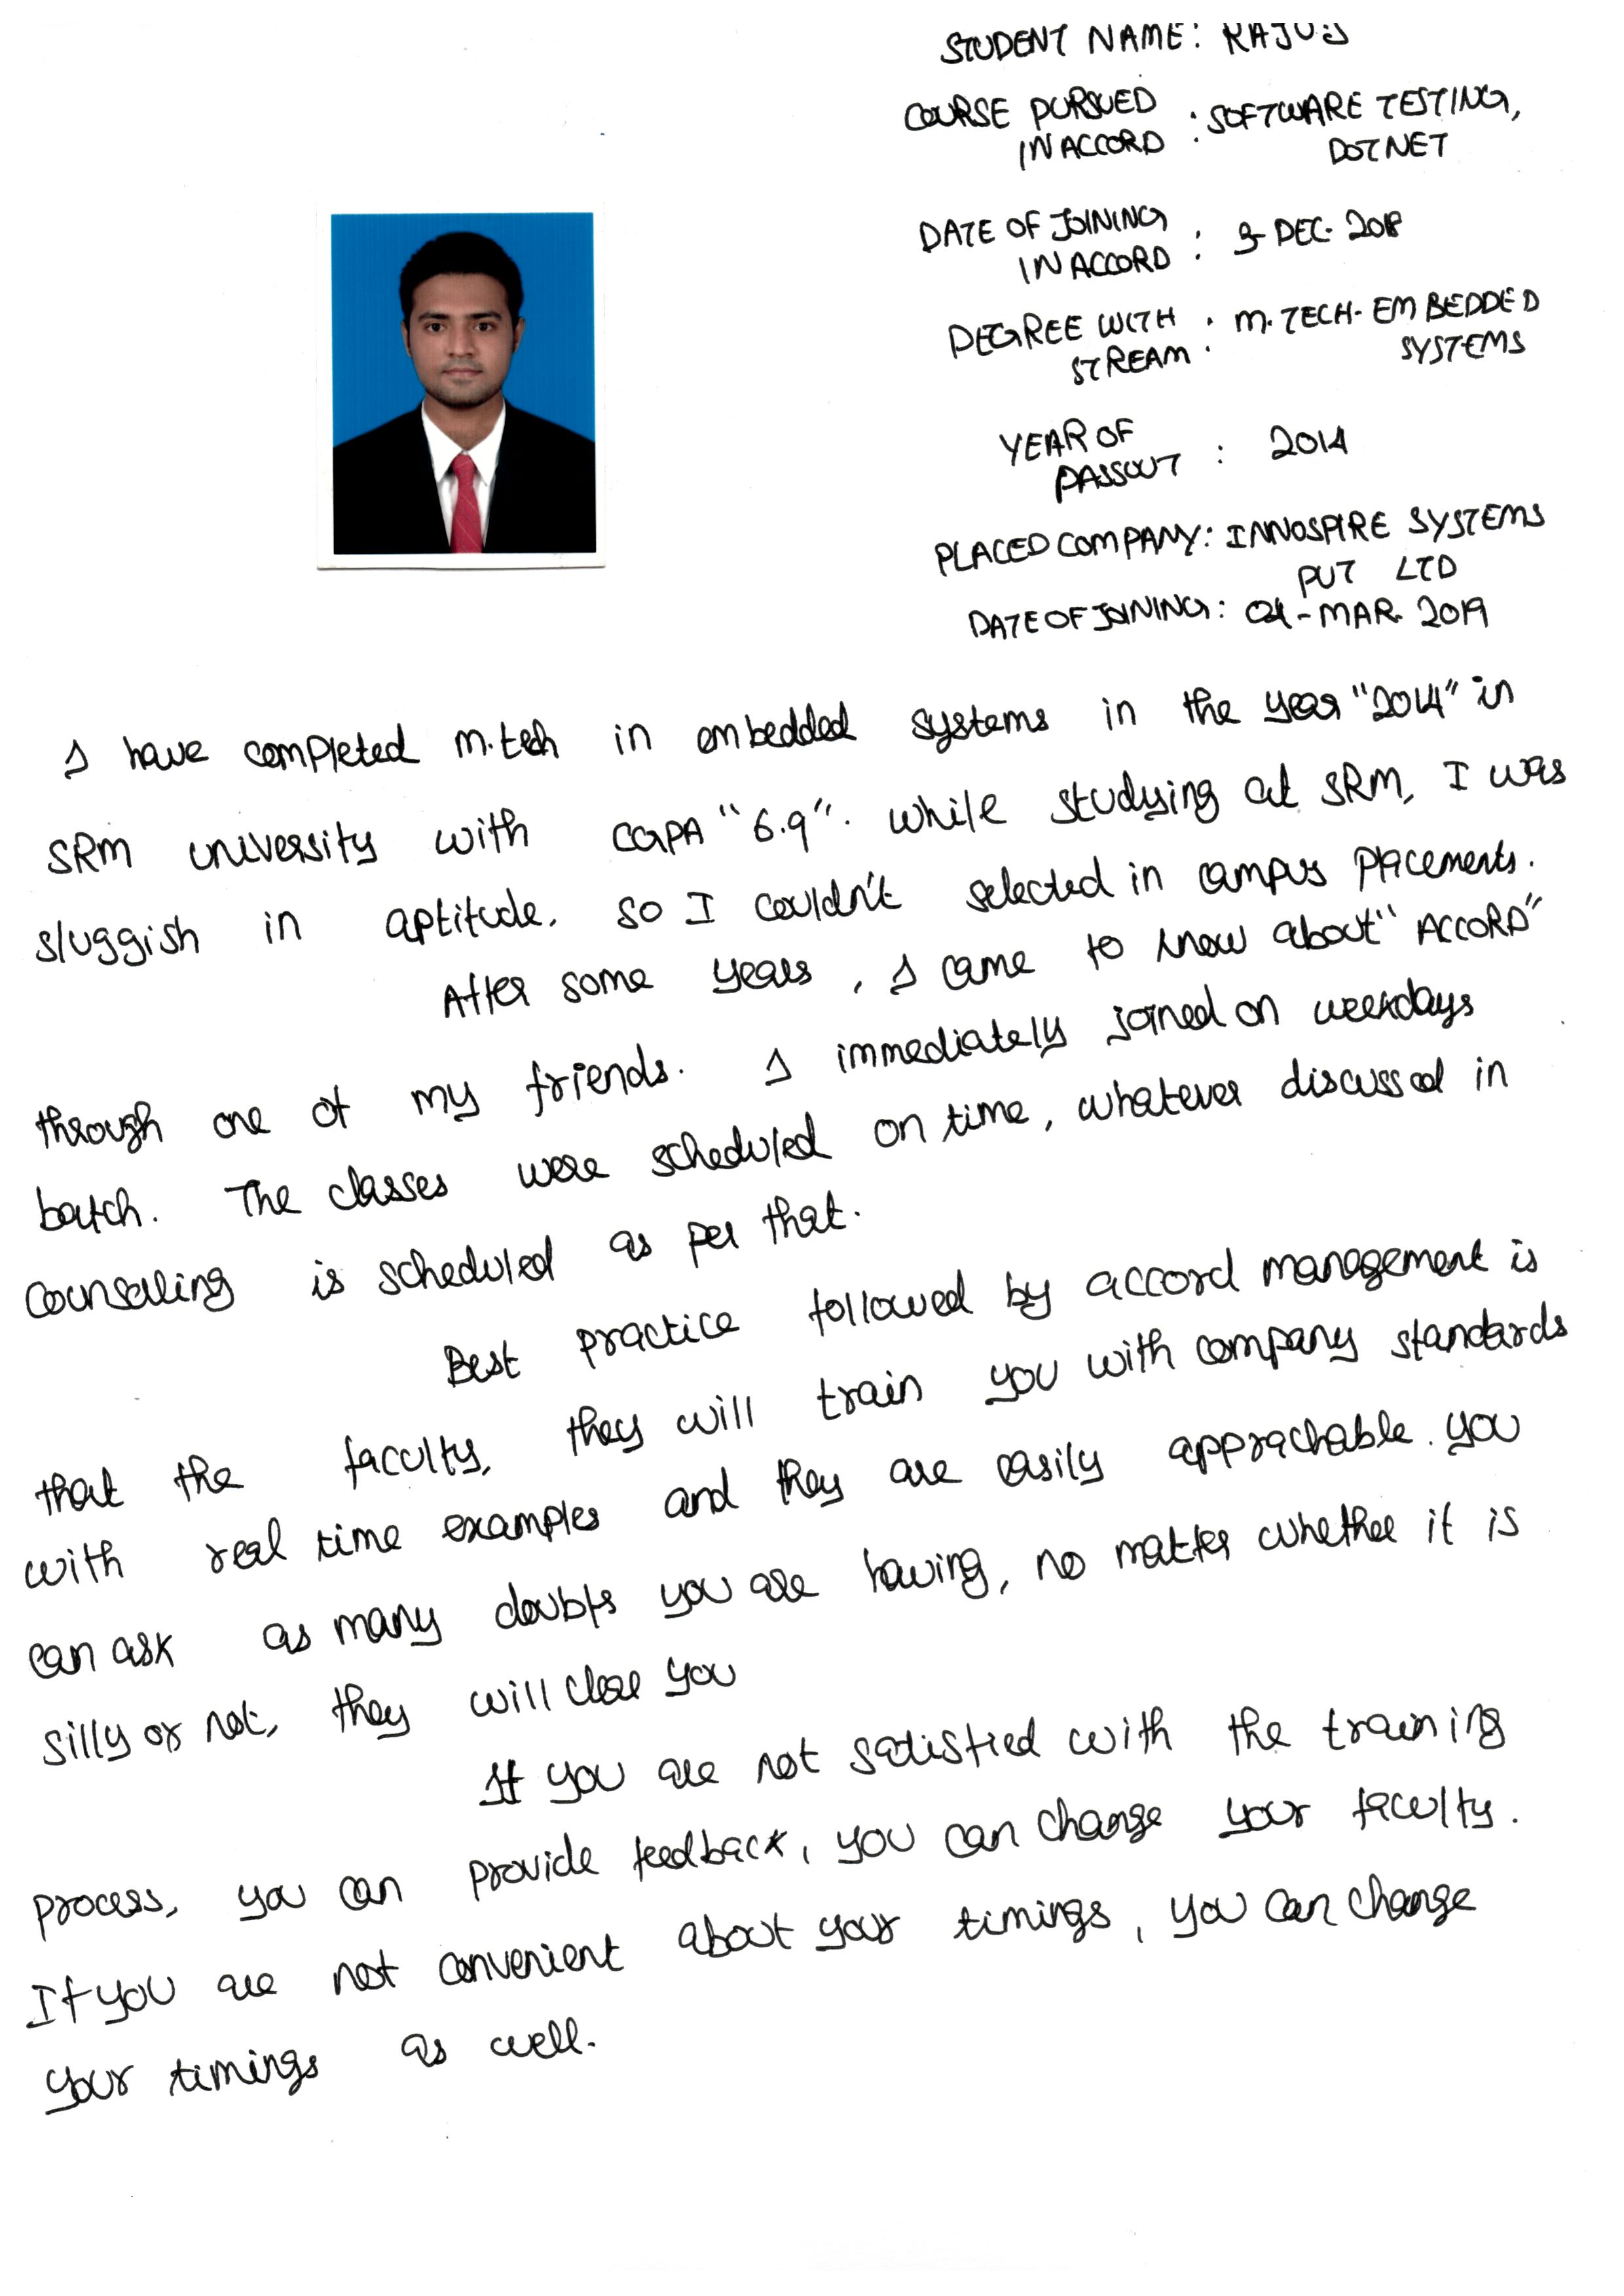 STUDENT NAME:
COURSE PURSUED
IN ACCORD : SOFTWARE TESTING,
DOTNET
DATE OF JOINING
IN ACCORD : 3-DEC-2018
DEGREE WITH
STREAM : M.TECH-EMBEDDED
SYSTEMS
YEAR OF
PASSOUT : 2014
PLACED COMPANY: INNOSPIRE SYSTEMS
PVT LTD
DATE OF JOINING: -MAR-2019
I have completed m.tech in embedded systems in the year "2014" in
SRM university with CGPA "6.9". while studying at SRM, I was
sluggish in aptitude. so I couldn't selected in campus placements.
After some years, I came to know about "ACCORD"
through one of my friends. I immediately joined on weekdays
batch. The classes were scheduled on time, whatever discussed in
Counseling is scheduled as per that.
Best practice followed by accord management is
that the faculty, they will train you with company standards
with real time examples and they are easily apprachable. you
can ask as many doubts you are having, no matter whether it is
silly or not, they will clear you
If you are not satisfied with the training
process, you can provide feedback, you can change your faculty.
If you are not convenient about your timings, you can change
your timings as well.